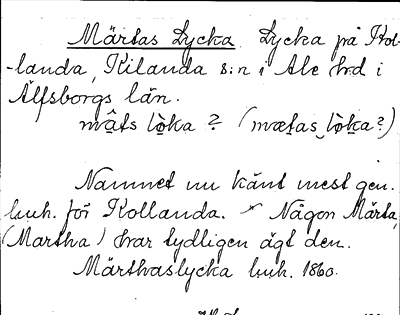 Märtas Lycka Lycka på Kol-
-landa, Kilanda s:n i Ale hrd i
Älfsborgs län.
mâts lòka ? (mætas lòka?)
Namnet nu känt mest gen.
huh. för Kollanda. Någon Märta,
(Martha) har tydligen ägt den.
Märthaslycka huh. 1860.